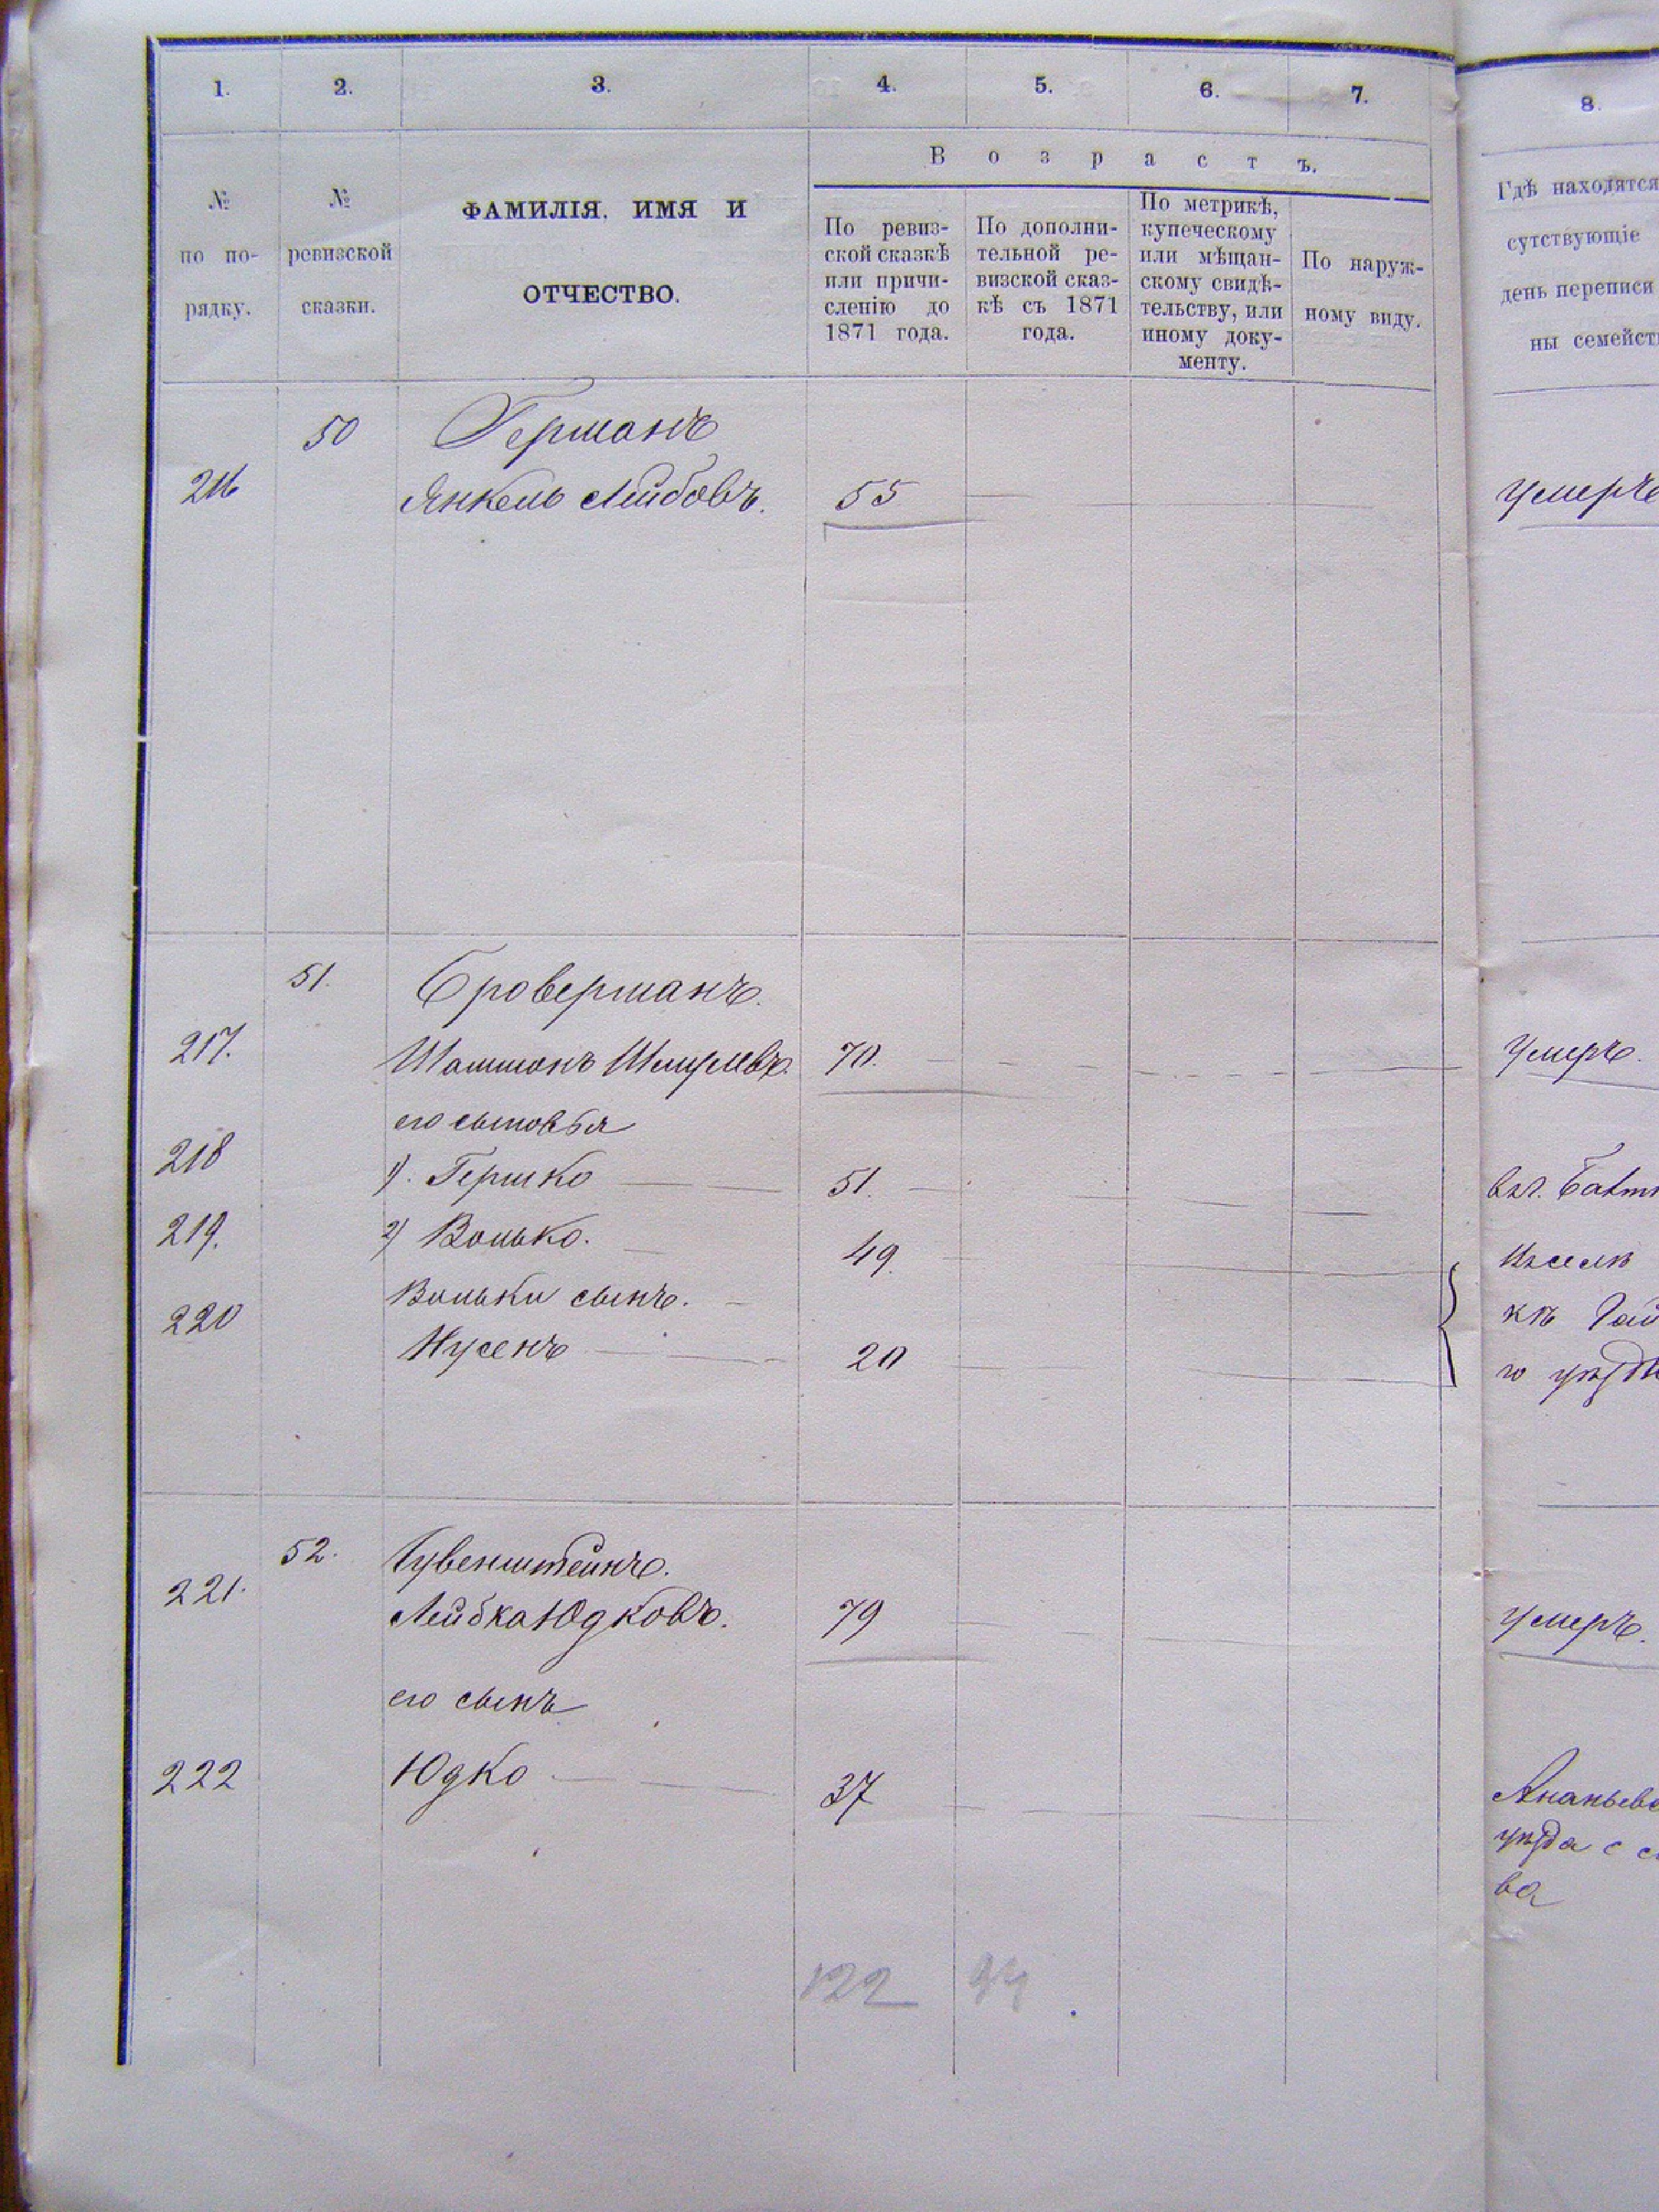 1. 2. 3. 4. 5. 6. 7. 8.
Возрастъ.
№ по по-
рядку.
№ ревизской
сказки.
ФАМИЛІЯ, ИМЯ И
ОТЧЕСТВО.
По ревиз-
ской сказкѣ
или причи-
сленію до
1871 года.
По дополни-
тельной ре-
визской сказ-
кѣ съ 1871
года.
По метрикѣ,
купеческому
или мѣщан-
скому свидѣ-
тельству, или
иному доку-
менту.
По наруж-
ному виду.
Гдѣ находятся
сутствующіе
день переписи
ны семейст
50 Германъ
216 Янкель Лейбовъ. 55 умеръ
51. Броверманъ.
217. Шлиомовъ 70. умеръ.
его сыновья
218 1). Гершко 51.
219. 2) Волько. 49
Вольки сынъ.
220 Нусенъ 20
52.
221. Лейбка Юдковъ. 79 умеръ.
его сынъ
222 Юдко 37 Ананьевс
уѣзда с
ва
122